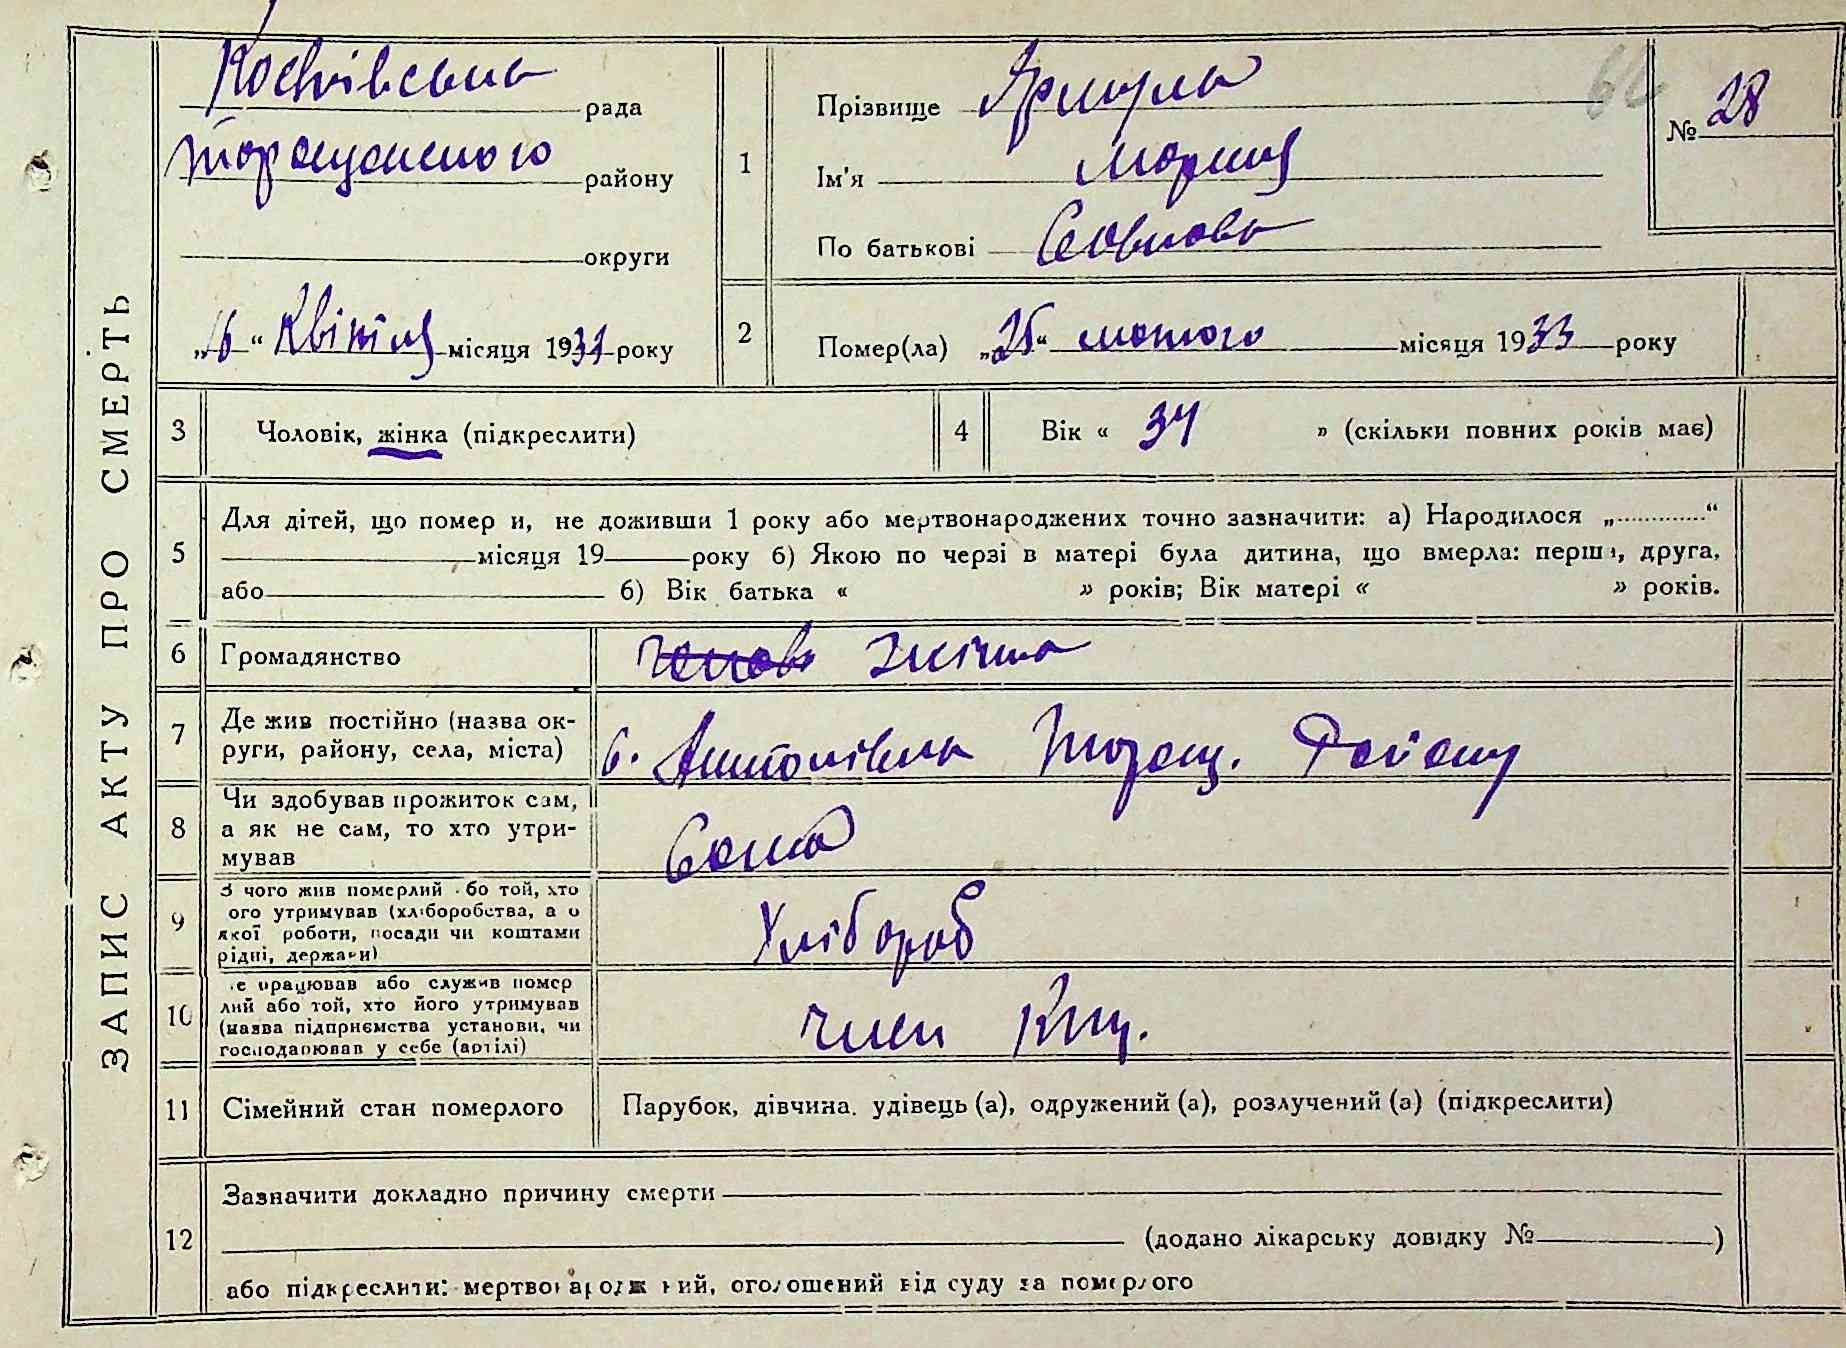 ЗАПИС АКТУ ПРО СМЕРТЬ
рада
районy
округи
„16“ Квітня місяця 1933 року
1
Прізвище Ярмула
Ім'я Марина
По батькові
№ 28
2
Помер(ла) „25“ лютого місяця 1933 року
3
Чоловік, жінка (підкреслити)
4
Вік « 34 » (скільки повних років має)
5
Для дітей, що помер и, не доживши 1 року або мертвонароджених точно зазначити: а) Народилося „............“
місяця 19 року б) Якою по черзі в матері була дитина, що вмерла: перша, друга,
або б) Вік батька « » років; Вік матері « » років.
6
Громадянство жінка
7
Де жив постійно (назва ок-
руги, району, села, міста)
с. Антонівка Таращ. Району
8
Чи здобував прожиток сам,
а як не сам, то хто утри-
мував
Сама
9
З чого жив померлий або той, хто
його утримував (хліборобства, а о
якої роботи, посади чи коштами
рідні, держави)
Хлібороб
10
Де працював або служив помер
лий або той, хто його утримував
(назва підприємства установи, чи
господарював у себе (артілі)
член
11
Сімейний стан померлого
Парубок, дівчина, удівець (а), одружений (а), розлучений (а) (підкреслити)
12
Зазначити докладно причину смерти
(додано лікарську довідку № )
або підкреслити: мертвонароджений, оголошений від суду за померлого